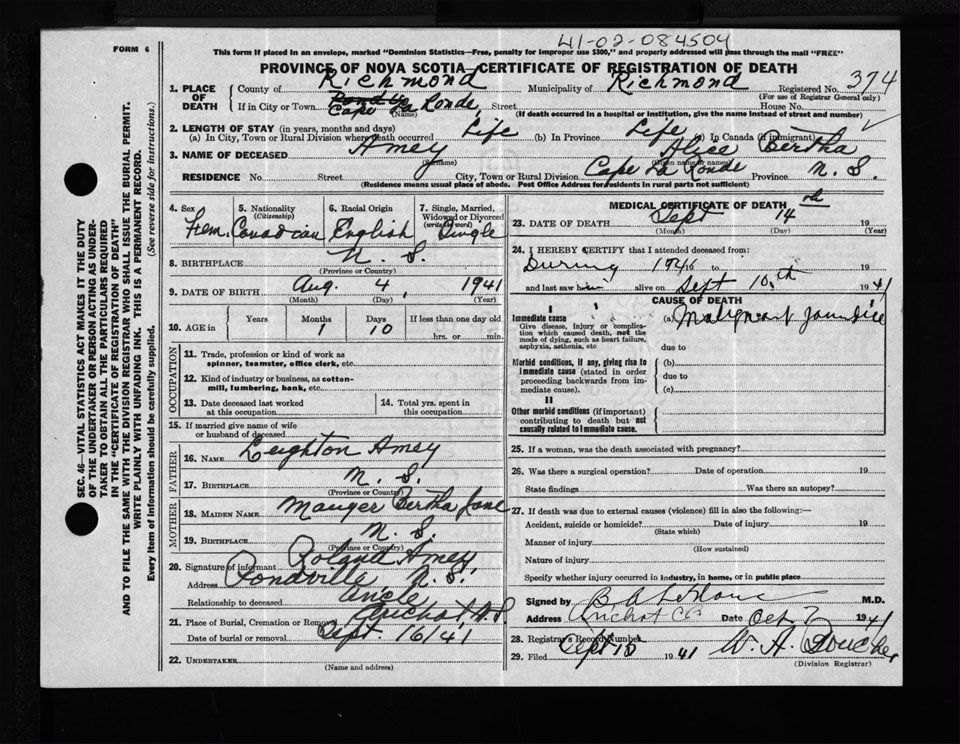 41-02-084504
FORM 6
This form if placed in an envelope, marked "Dominion Statistics—Free, penalty for improper use $300," and properly addressed will pass through the mail "FREE"
PROVINCE OF NOVA SCOTIA—CERTIFICATE OF REGISTRATION OF DEATH
1. PLACE OF DEATH
County of Richmond Municipality of Richmond Registered No. 374
(For use of Registrar General only)
If in City or Town Cape La Ronde, Street House No.
(Name)
(If death occurred in a hospital or institution, give the name instead of street and number)
2. LENGTH OF STAY (in years, months and days)
(a) In City, Town or Rural Division where death occurred Life (b) In Province Life (c) In Canada (if immigrant)
3. NAME OF DECEASED Amey Alice Bertha
(Surname) (Given name or names)
RESIDENCE No. Street City, Town or Rural Division Cape La Ronde Province N. S.
(Residence means usual place of abode. Post Office Address for residents in rural parts not sufficient)
4. Sex Fem.
5. Nationality (Citizenship) Canadian
6. Racial Origin English
7. Single, Married, Widowed or Divorced (write the word) Single
8. BIRTHPLACE N. S.
(Province or Country)
9. DATE OF BIRTH Aug. 4, 1941
(Month) (Day) (Year)
10. AGE in Years Months 1 Days 10 If less than one day old
hrs. or min.
OCCUPATION
11. Trade, profession or kind of work as spinner, teamster, office clerk, etc.
12. Kind of industry or business, as cotton-mill, lumbering, bank, etc.
13. Date deceased last worked at this occupation
14. Total yrs. spent in this occupation
15. If married give name of wife or husband of deceased
FATHER
16. NAME Leighton Amey
17. BIRTHPLACE N. S.
(Province or Country)
MOTHER
18. MAIDEN NAME Mauger Bertha Jane
19. BIRTHPLACE N. S.
(Province or Country)
20. Signature of informant Roland Amey
Address Pondville, N. S.
Relationship to deceased Uncle
21. Place of Burial, Cremation or Removal Arichat, N.S.
Date of burial or removal Sept. 16/41
22. UNDERTAKER
(Name and address)
MEDICAL CERTIFICATE OF DEATH
23. DATE OF DEATH Sept 14th 19
(Month) (Day) (Year)
24. I HEREBY CERTIFY that I attended deceased from:
During 19 to 19
and last saw h alive on Sept 10th 1941
CAUSE OF DEATH
I
Immediate cause (a) Malignant jaundice
Give disease, injury or complication which caused death, not the mode of dying, such as heart failure, asphyxia, asthenia, etc
due to
Morbid conditions, if any, giving rise to immediate cause (stated in order proceeding backwards from immediate cause).
(b)
due to
(c)
II
Other morbid conditions (if important) contributing to death but not causally related to immediate cause.
25. If a woman, was the death associated with pregnancy?
26. Was there a surgical operation? Date of operation 19
State findings Was there an autopsy?
27. If death was due to external causes (violence) fill in also the following:—
Accident, suicide or homicide? Date of injury 19
(State which)
Manner of injury
(How sustained)
Nature of injury
Specify whether injury occurred in industry, in home, or in public place
Signed by B. A. LeBlanc M.D.
Address Arichat C.B. Date Oct 7 1941
28. Registrar's Record Number
29. Filed Sept 18 1941 W. A.
(Division Registrar)
SEC. 46—VITAL STATISTICS ACT MAKES IT THE DUTY
OF THE UNDERTAKER OR PERSON ACTING AS UNDER-
TAKER TO OBTAIN ALL THE PARTICULARS REQUIRED
IN THE "CERTIFICATE OF REGISTRATION OF DEATH"
AND TO FILE THE SAME WITH THE DIVISION REGISTRAR WHO SHALL ISSUE THE BURIAL PERMIT.
WRITE PLAINLY WITH UNFADING INK. THIS IS A PERMANENT RECORD.
Every item of information should be carefully supplied. (See reverse side for instructions.)